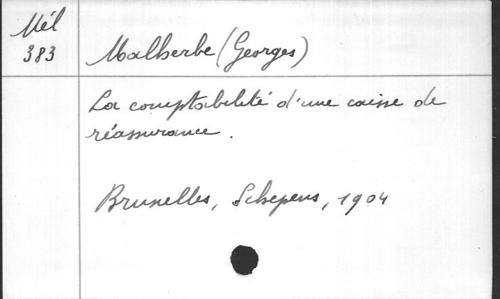 Mél
383
Malherbe (Georges)
La comptabilité d'une caisse de
réassurance.
Bruxelles, Schepens, 1904